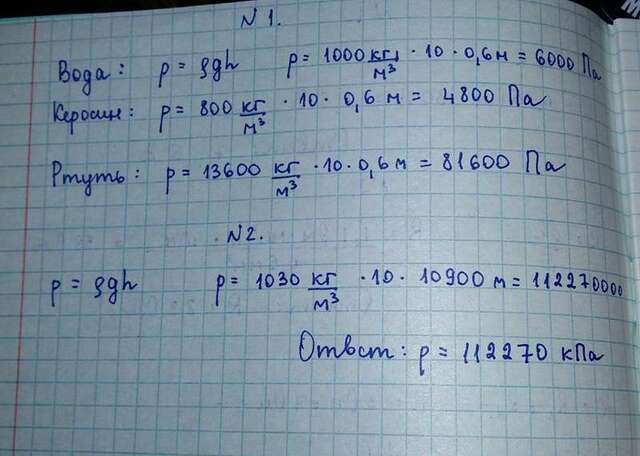 N 1.
Вода: p = ρgh p = 1000 кг/м³ · 10 · 0,6 м = 6000 Па
Керосин: p = 800 кг/м³ · 10 · 0,6 м = 4800 Па
Ртуть: p = 13600 кг/м³ · 10 · 0,6 м = 81600 Па
N2.
p = ρgh p = 1030 кг/м³ · 10 · 10900 м = 112270000
Ответ: p = 112270 кПа